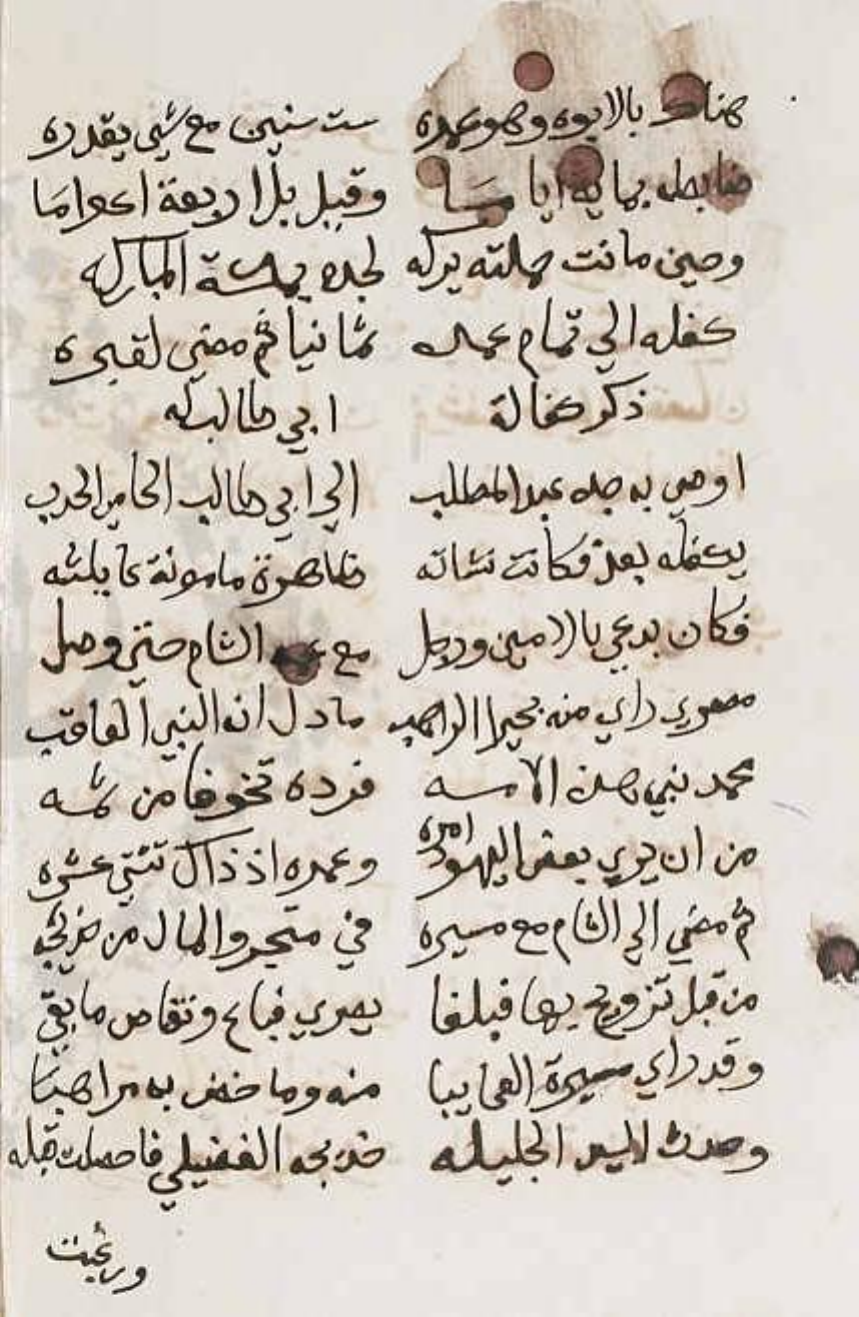 هناك بالابوه وهو عمره ست سنين مع شيى يقدره
ضابطه بمايه اياما وقيل بل اربعة اعواما
وحين ماتت حملته بركه لجده بمكة المباركه
كفله الي تمام عمره ثمانيا ثم مضي لقبره
ذكر كفالة ابي طالب له
اوصي به جده عبدالمطلب الي ابي طالب الحامي الحدب
يكفله بعد فكانت نشاته طاهرة مامونة غايلته
فكان يدعي بالامين ورحل مع عمه الشام حتي وصل
بصري راي منه بحيرا الراهب ما دل انه النبي العاقب
محمد نبي هذه الامه فرده تخوفا من ثمه
من ان يري بعض اليهود امره وعمره اذ ذاك ثنتي عشره
ثم مضي الي الشام مع ميسره في متجر والمال من خديجه
من قبل تزويج بها فبلغا بصري فباع وتقاضي ما بقي
وقد راي ميسرة العجايبا منه وما خص به مواهبا
وحدث السيده الجليله خديجه الفضيلي فاحصلت قيله
ورغبت